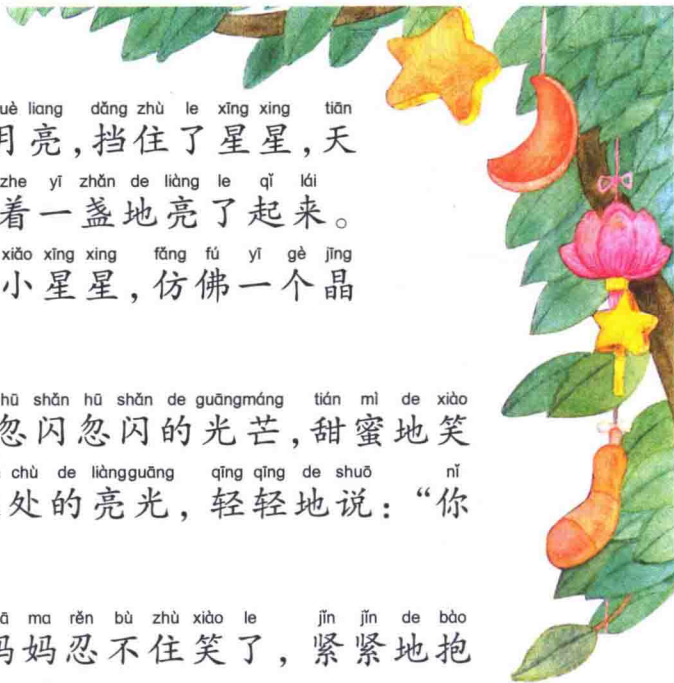 uè liang dǎng zhù le xīng xing tiān
月亮,挡住了星星,天
zhe yī zhǎn de liàng le qǐ lái
着一盏地亮了起来。
xiǎo xīng xing fǎng fú yī gè jīng
小星星,仿佛一个晶
hū shǎn hū shǎn de guāngmáng tián mì de xiào
忽闪忽闪的光芒,甜蜜地笑
chù de liàngguāng qīng qīng de shuō nǐ
处的亮光,轻轻地说:“你
ā ma rěn bù zhù xiào le jǐn jǐn de bào
妈妈忍不住笑了,紧紧地抱